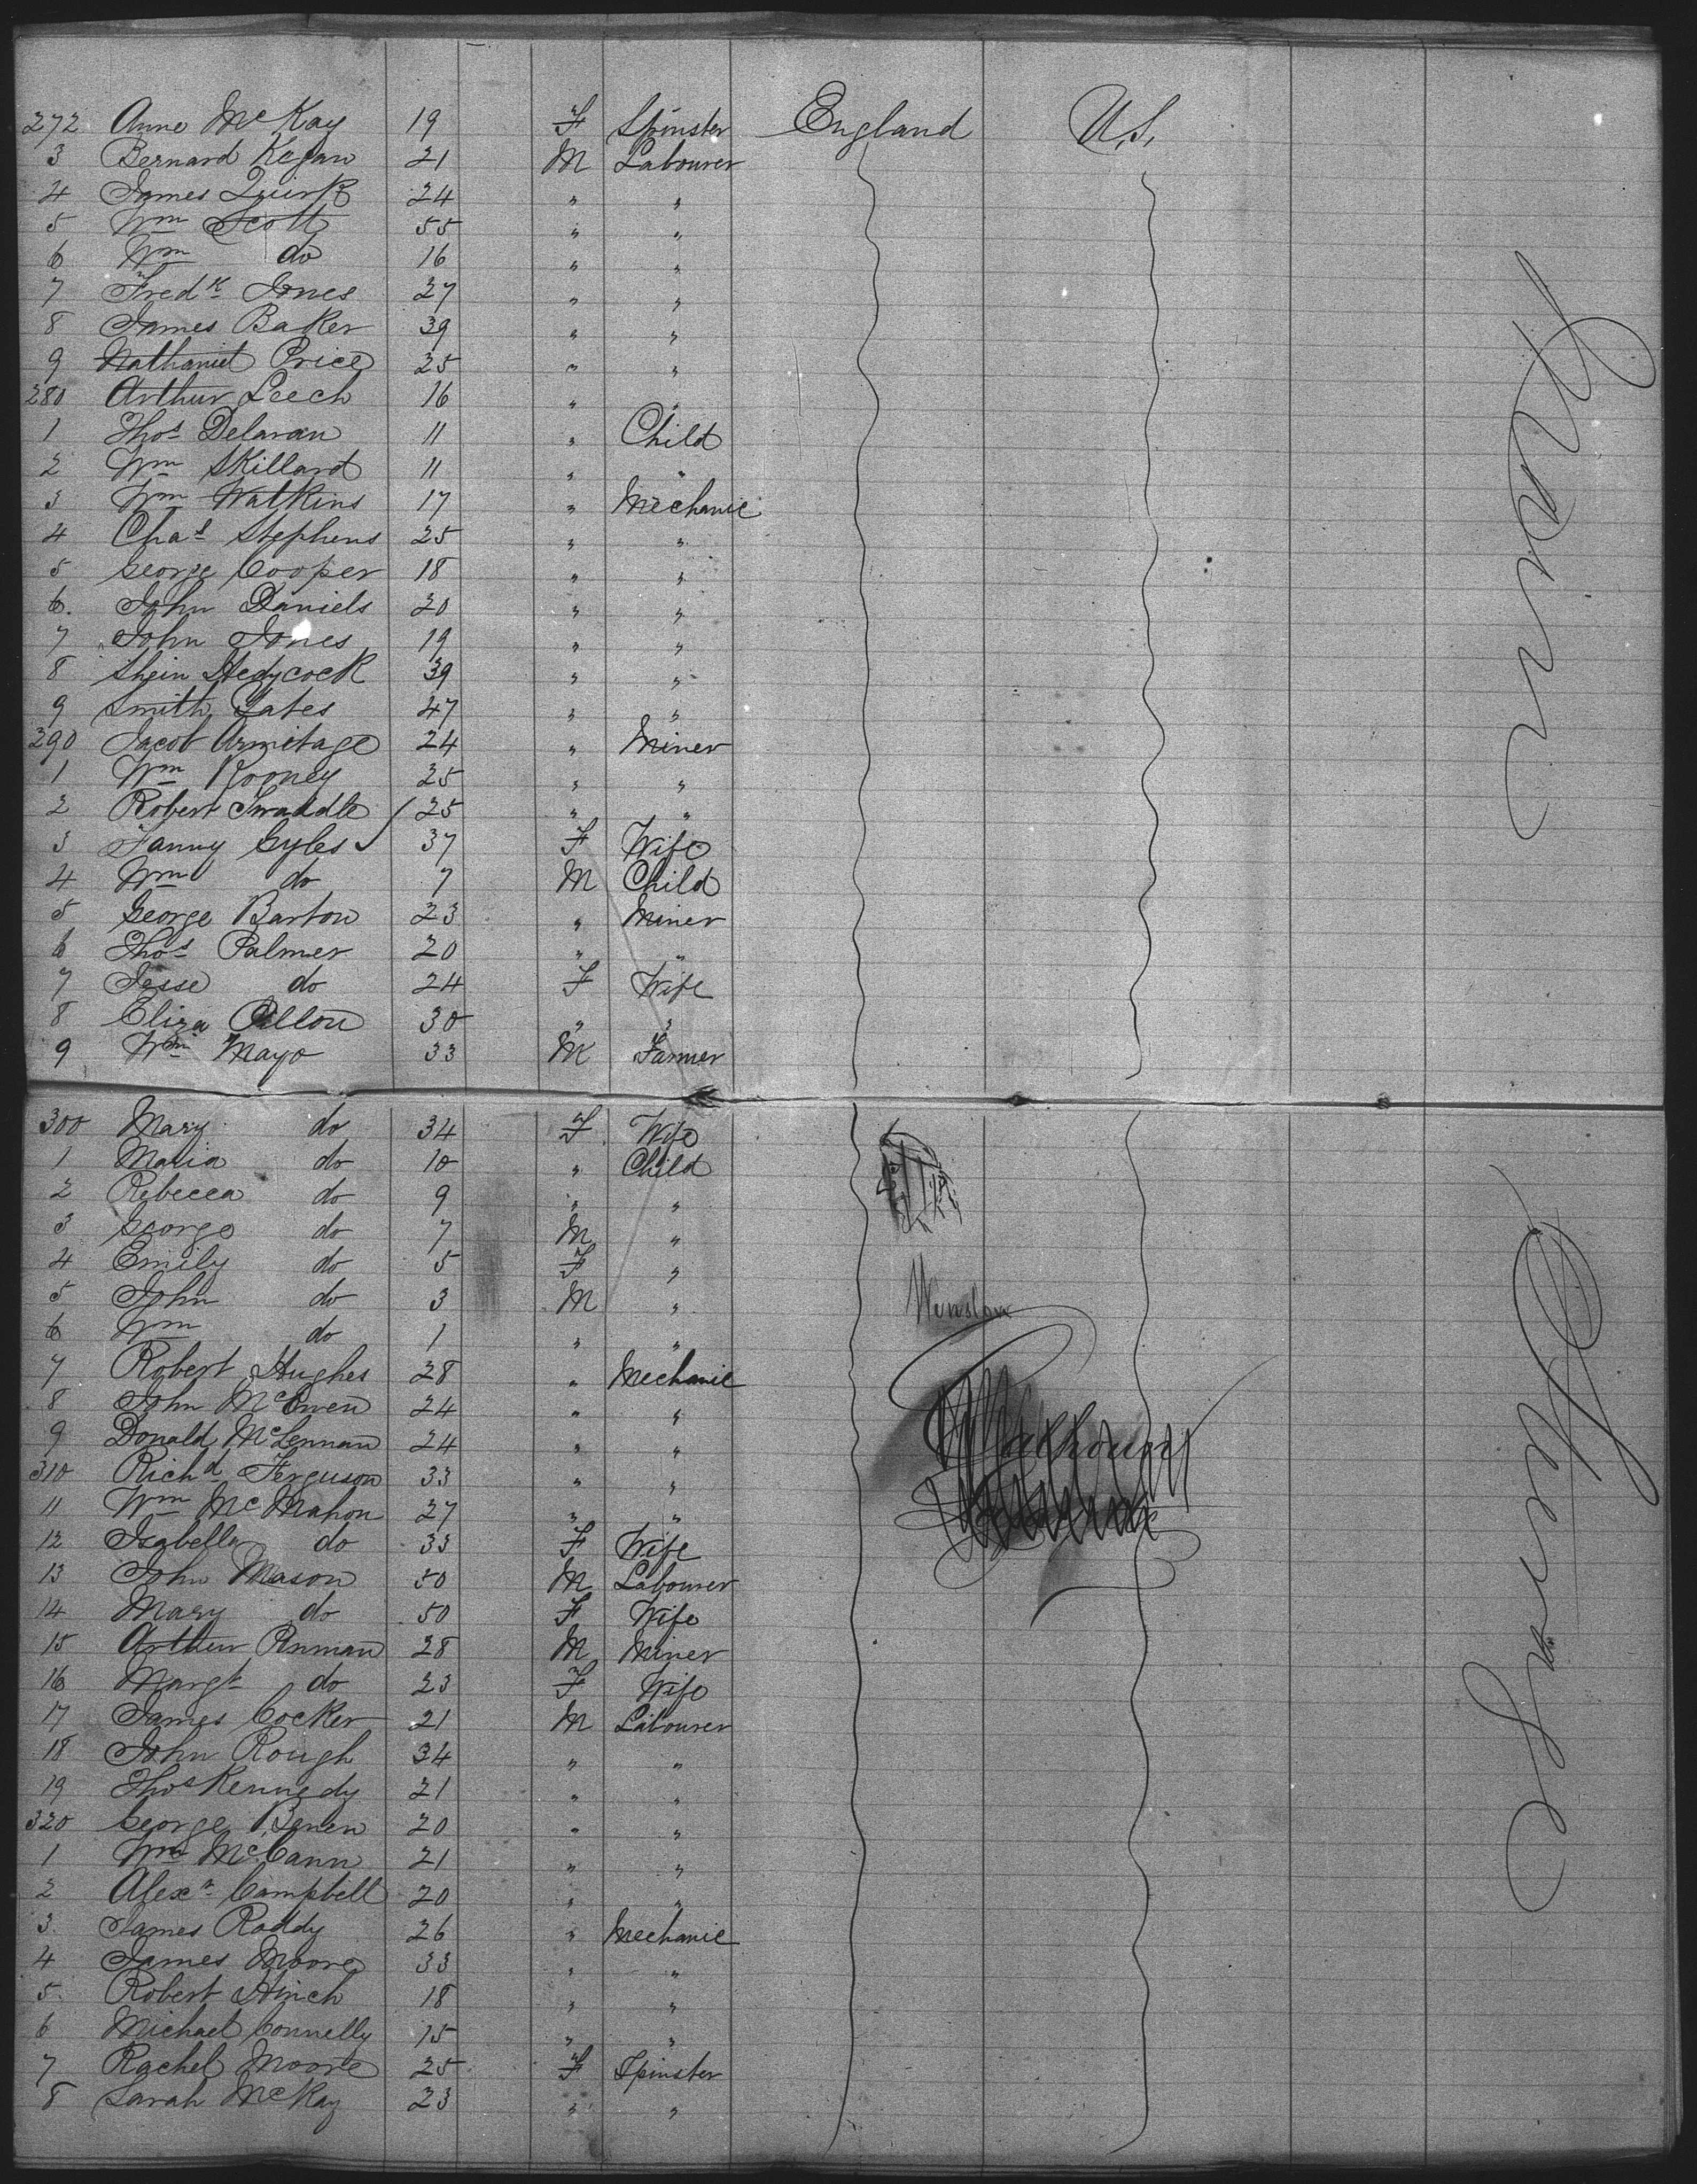 272 Anne McKay 19 F Spinster England U.S.
3 Bernard Kegan 21 M Labourer
4 James Quirk 24 " "
5 Wm Scott 55 " "
6 Wm do 16 " "
7 Fredk Jones 27 " "
8 James Baker 39 " "
9 Nathaniel Price 25 " "
280 Arthur Leech 16 " "
1 Thos Delavan 11 " Child
2 Wm Skillard 11 " "
3 Wm Watkins 17 " Mechanic
4 Chas Stephens 25 " "
5 George Cooper 18 " "
6 John Daniels 20 " "
7 John Jones 19 " "
8 Shein Hedgcock 39 " "
9 Smith Yates 47 " "
290 Jacob Armitage 24 " Miner
1 Wm Rooney 25 " "
2 Robert Swaddle 25 " "
3 Fanny Gyles 37 F Wife
4 Wm do 7 M Child
5 George Barton 23 " Miner
6 Thos Palmer 20 " "
7 Jesse do 24 F Wife
8 Eliza 30 " "
9 Wm Mayo 33 M Farmer
300 Mary do 34 F Wife
1 Maria do 10 " Child
2 Rebecca do 9 " "
3 George do 7 M "
4 Emily do 5 F "
5 John do 3 M "
6 Wm do 1 " "
Winslow
7 Robert Hughes 28 " Mechanic
8 John McEwen 24 " "
9 Donald McLennan 24 " "
310 Richd Ferguson 33 " "
11 Wm McMahon 27 " "
12 Isabella do 33 F Wife
13 John Mason 50 M Labourer
14 Mary do 50 F Wife
15 Arthur Penman 28 M Miner
16 Margt do 23 F Wife
17 James Cocker 21 M Labourer
18 John Rough 34 " "
19 Thos Kennedy 21 " "
320 George 20 " "
1 Wm McCann 21 " "
2 Alexr Campbell 20 " "
3 James Roddy 26 " Mechanic
4 James Moore 33 " "
5 Robert Hinch 18 " "
6 Michael Connelly 15 " "
7 Rachel Moore 25 F Spinster
8 Sarah McKay 23 " "